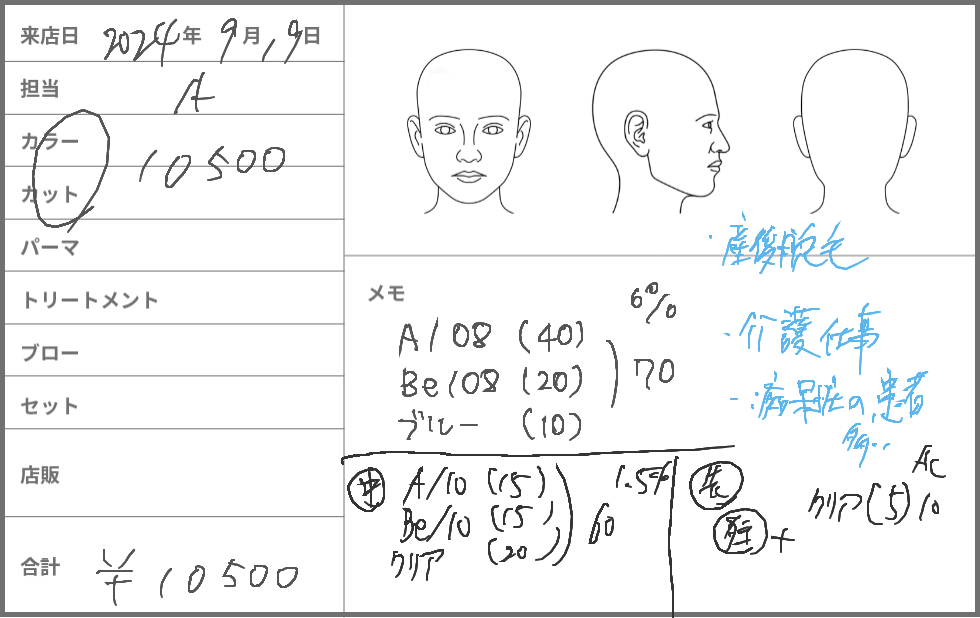 来店日 2024年 9月19日
担当 A
カラー
カット
10500
パーマ
トリートメント
ブロー
セット
店販
合計 ¥10500
・産後脱毛
・介護仕事
・認知症の患者
多い
メモ
6%
A/08 (40)
Be/08 (20)
ブルー (10)
70
中 A/10 (15)
Be/10 (15)
クリア (20)
1.5%
60
Ac
クリア (5) 10
+